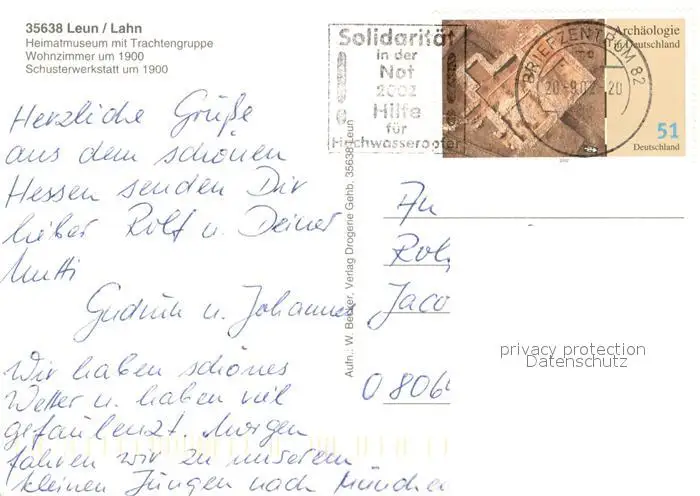 35638 Leun / Lahn
Heimatmuseum mit Trachtengruppe
Wohnzimmer um 1900
Schusterwerkstatt um 1900
Solidarität
in der
Not
2002
Hilfe
für
Hochwasseropfer
BRIEFZENTRUM 82
20.-9.02-20
Archäologie
in Deutschland
51
Deutschland
Herzliche Grüße
aus dem schönen
Hessen senden Dir
lieber Rolf u. Deiner
Mutti
Gudrun u. Johannes
Wir haben schönes
Wetter u. haben viel
gefaulenzt. Morgen
fahren wir zu unserem
kleinen Jungen nach Münche
Aufn.: W. Becker, Verlag Drogerie Gehb. 35638 Leun
An
Rol
Jaco
0806
privacy protection
Datenschutz